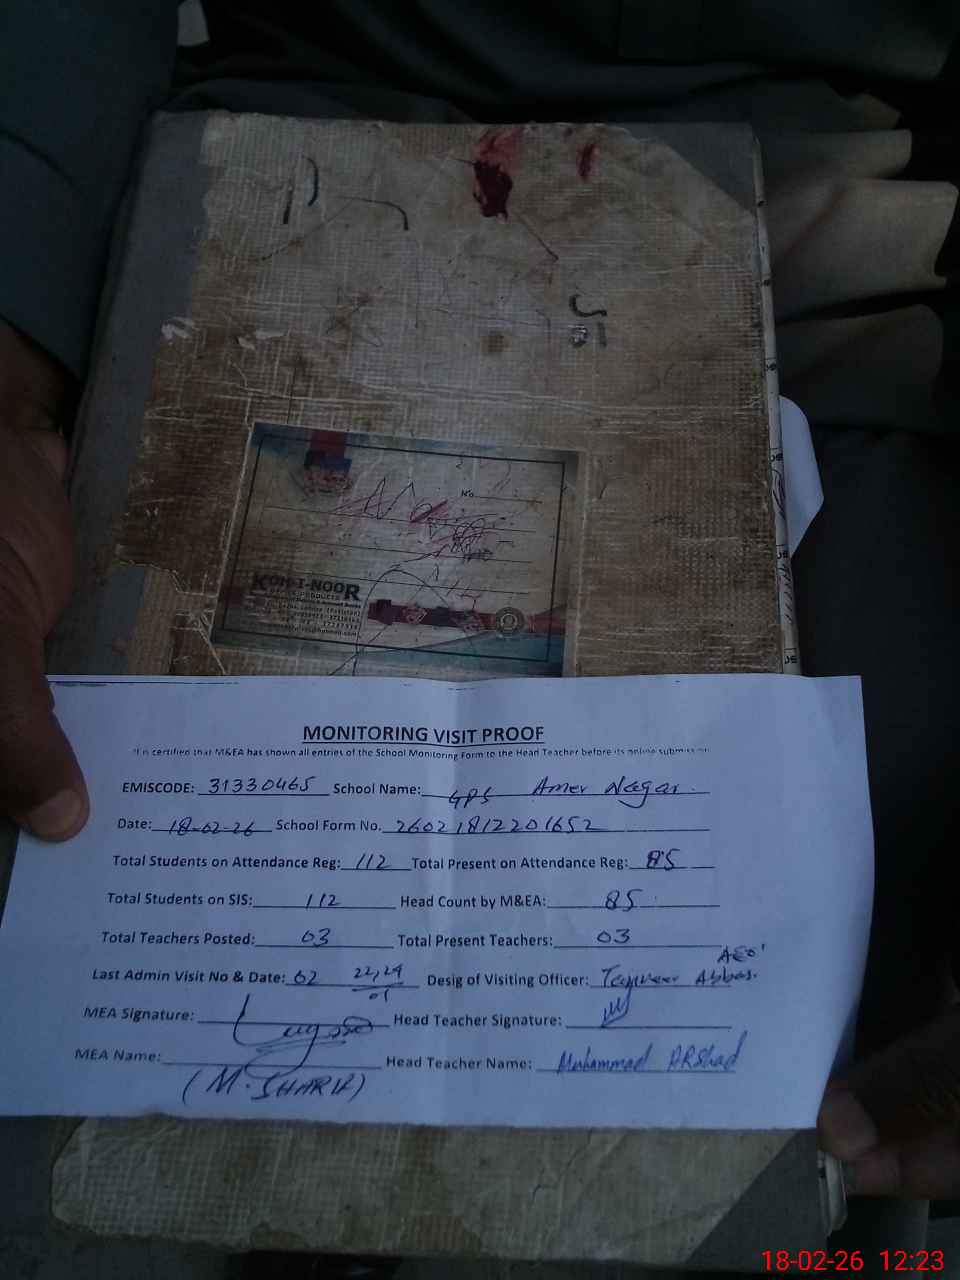 No.
KOH-I-NOOR
MONITORING VISIT PROOF
It is certified that M&EA has shown all entries of the School Monitoring Form to the Head Teacher before its online submission
EMISCODE: 31330465 School Name: GPS Amer Nagar.
Date: 18-02-26 School Form No. 260218122201652
Total Students on Attendance Reg: 112 Total Present on Attendance Reg: 85
Total Students on SIS: 112 Head Count by M&EA: 85
Total Teachers Posted: 03 Total Present Teachers: 03
AEO
Last Admin Visit No & Date: 02 22,29/01 Desig of Visiting Officer: Tanveer Abbas.
MEA Signature: Head Teacher Signature:
MEA Name: Head Teacher Name: Muhammad ARShad
(M. SHARIF)
18-02-26 12:23